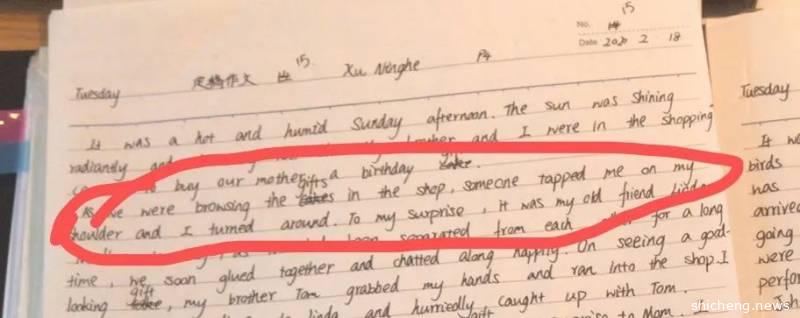 15
No. 14
Date 2020 2 18
15
Tuesday 定稿作文 14 Xu Ninghe
It was a hot and humid Sunday afternoon. The sun was shining
radiantly and brother and I were in the shopping
to buy our mother a birthday gift cake.
As we were browsing the gifts cakes in the shop, someone tapped me on my
shoulder and I turned around. To my surprise, it was my old friend Linda
separated from each for a long
time, we soon glued together and chatted along happily. On seeing a good-
looking gift cake, my brother Tom grabbed my hands and ran into the shop. I
linda and hurriedly, caught up with Tom.
gift to Mom.
Tuesday
It
birds
has
arrive
going
were
perfor
shicheng.news